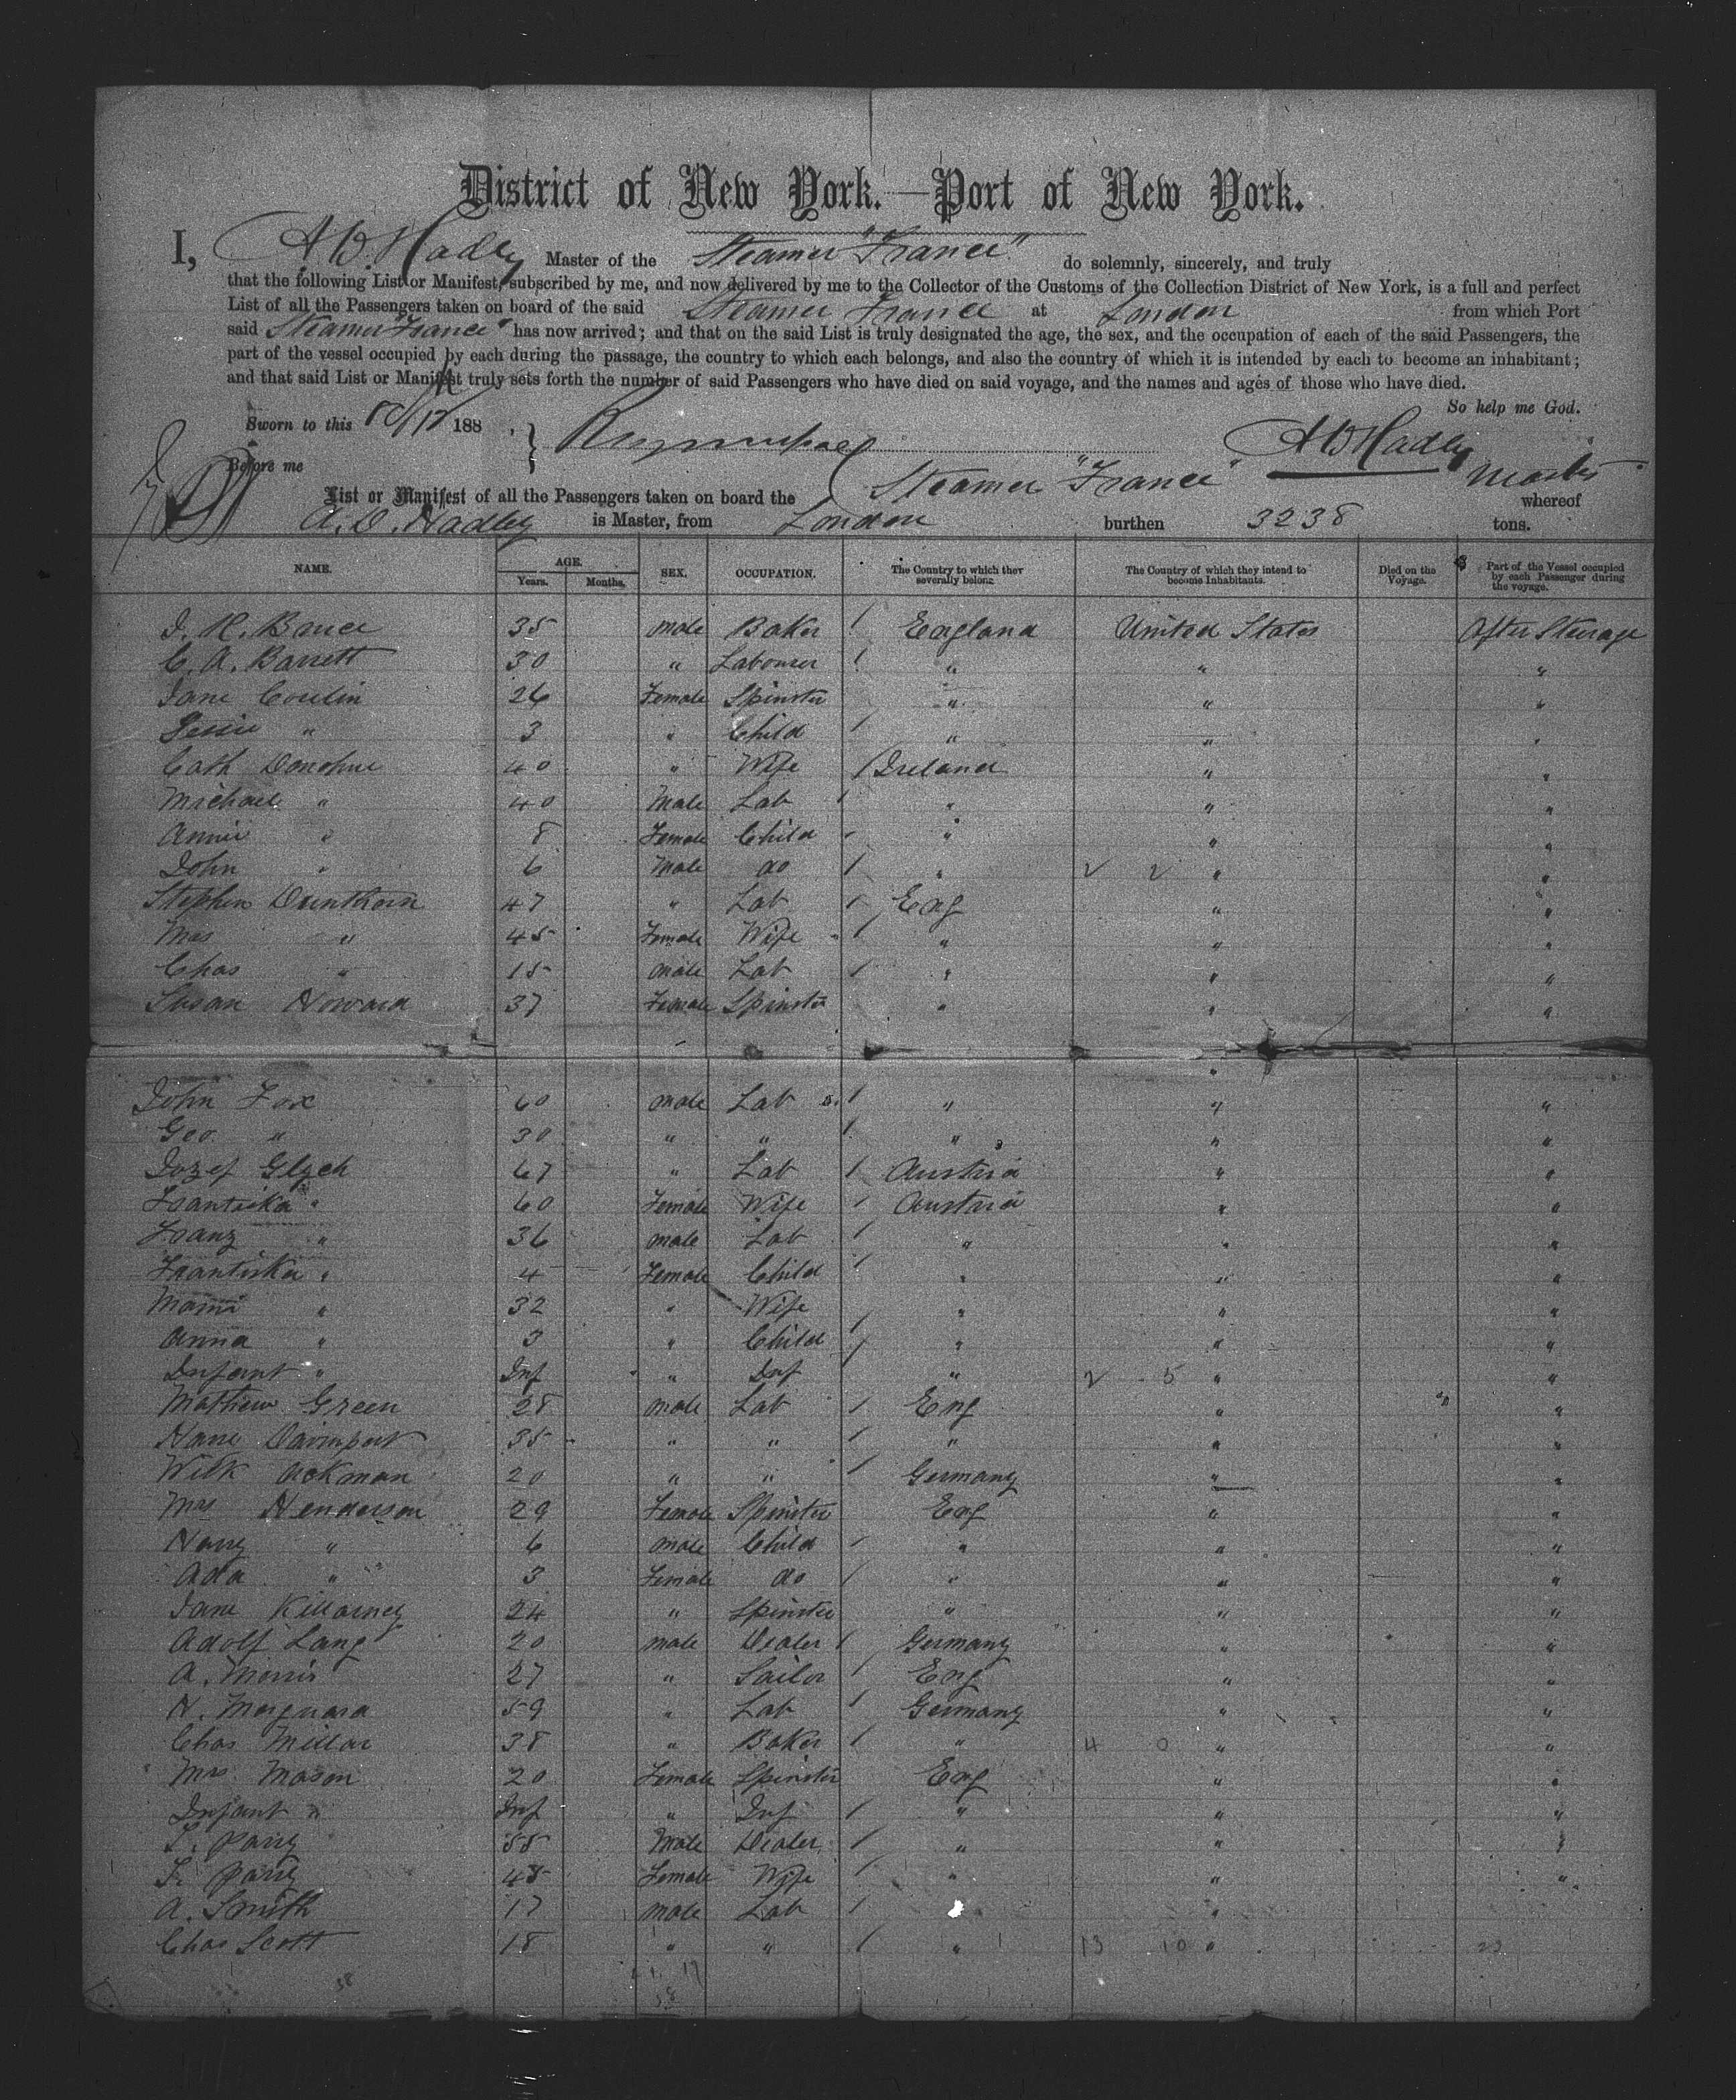 District of New York.—Port of New York.
I, A W Hadley Master of the Steamer "France" do solemnly, sincerely, and truly
that the following List or Manifest, subscribed by me, and now delivered by me to the Collector of the Customs of the Collection District of New York, is a full and perfect
List of all the Passengers taken on board of the said Steamer France at London from which Port
said Steamer "France" has now arrived; and that on the said List is truly designated the age, the sex, and the occupation of each of the said Passengers, the
part of the vessel occupied by each during the passage, the country to which each belongs, and also the country of which it is intended by each to become an inhabitant;
and that said List or Manifest truly sets forth the number of said Passengers who have died on said voyage, and the names and ages of those who have died.
So help me God.
Sworn to this 188 ,
A W Hadley
Before me
Master
List or Manifest of all the Passengers taken on board the Steamer "France" whereof
A. D. Hadley is Master, from London burthen 3238 tons.
NAME. AGE. Years. Months. SEX. OCCUPATION. The Country to which they severally belong. The Country of which they intend to become Inhabitants. Died on the Voyage. Part of the Vessel occupied by each Passenger during the voyage.
J. R. Bruce 35 male Baker / England United States After Steerage
C. A. Barrett 30 " Labourer / " " "
Jane Coulin 26 Female Spinster " " "
Jessie " 3 " Child / " " "
Cath Donohue 40 " Wife / Ireland " "
Michael " 40 Male Lab / " " "
Annie " 8 Female Child / " " "
John " 6 Male do / " 2 2 " "
Stephen Dunthorn 47 " Lab / Eng " "
Mrs " 45 Female Wife / " " "
Chas " 15 male Lab / " " "
Susan Howard 37 Female Spinster " " "
"
John Fox 60 male Lab / " " "
Geo " 30 " " / " " "
Jozef Glych 67 " Lab / Austria " "
Frantiska " 60 Female Wife / Austria " "
Franz " 36 male Lab / " " "
Frantiska " 4 Female Child / " " "
" 32 " Wife " " "
Anna " 3 " Child / " " "
Infant " Inf " Inf " 2 5 " "
Mathew Green 28 male Lab / Eng " "
Davinport 35 " " / " " "
Ackman 20 " " / Germany " "
Mrs Henderson 29 Female Spinster Eng " "
Harry " 6 male Child / " " "
Ada " 3 Female do / " " "
Jane Killarney 24 " Spinster " " "
Adolf Lang 20 male Dealer / Germany " "
A. Morris 27 " Sailor / Eng " "
59 " Lab / Germany " "
Chas Millar 38 " Baker / " 4 0 " "
Mrs Mason 20 Female Spinster Eng " "
Infant " Inf " Inf / " " "
Parry 55 Male Dealer / " " "
F. Parry 45 Female Wife / " " "
A. Smith 17 male Lab / " "
Chas Scott 18 " " / " 13 10 " 23
38
17
38